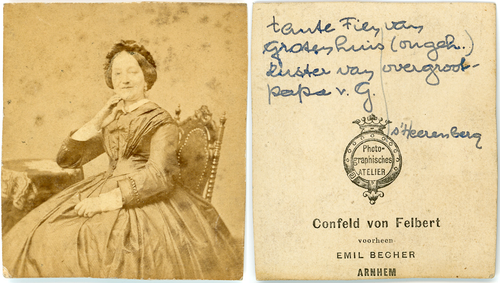 tante Fien van
Grotenhuis (ongeh.)
zuster van overgroot-
papa v. G.
's Heerenberg
Photo-
graphisches
ATELIER
Confeld von Felbert
voorheen
EMIL BECHER
ARNHEM